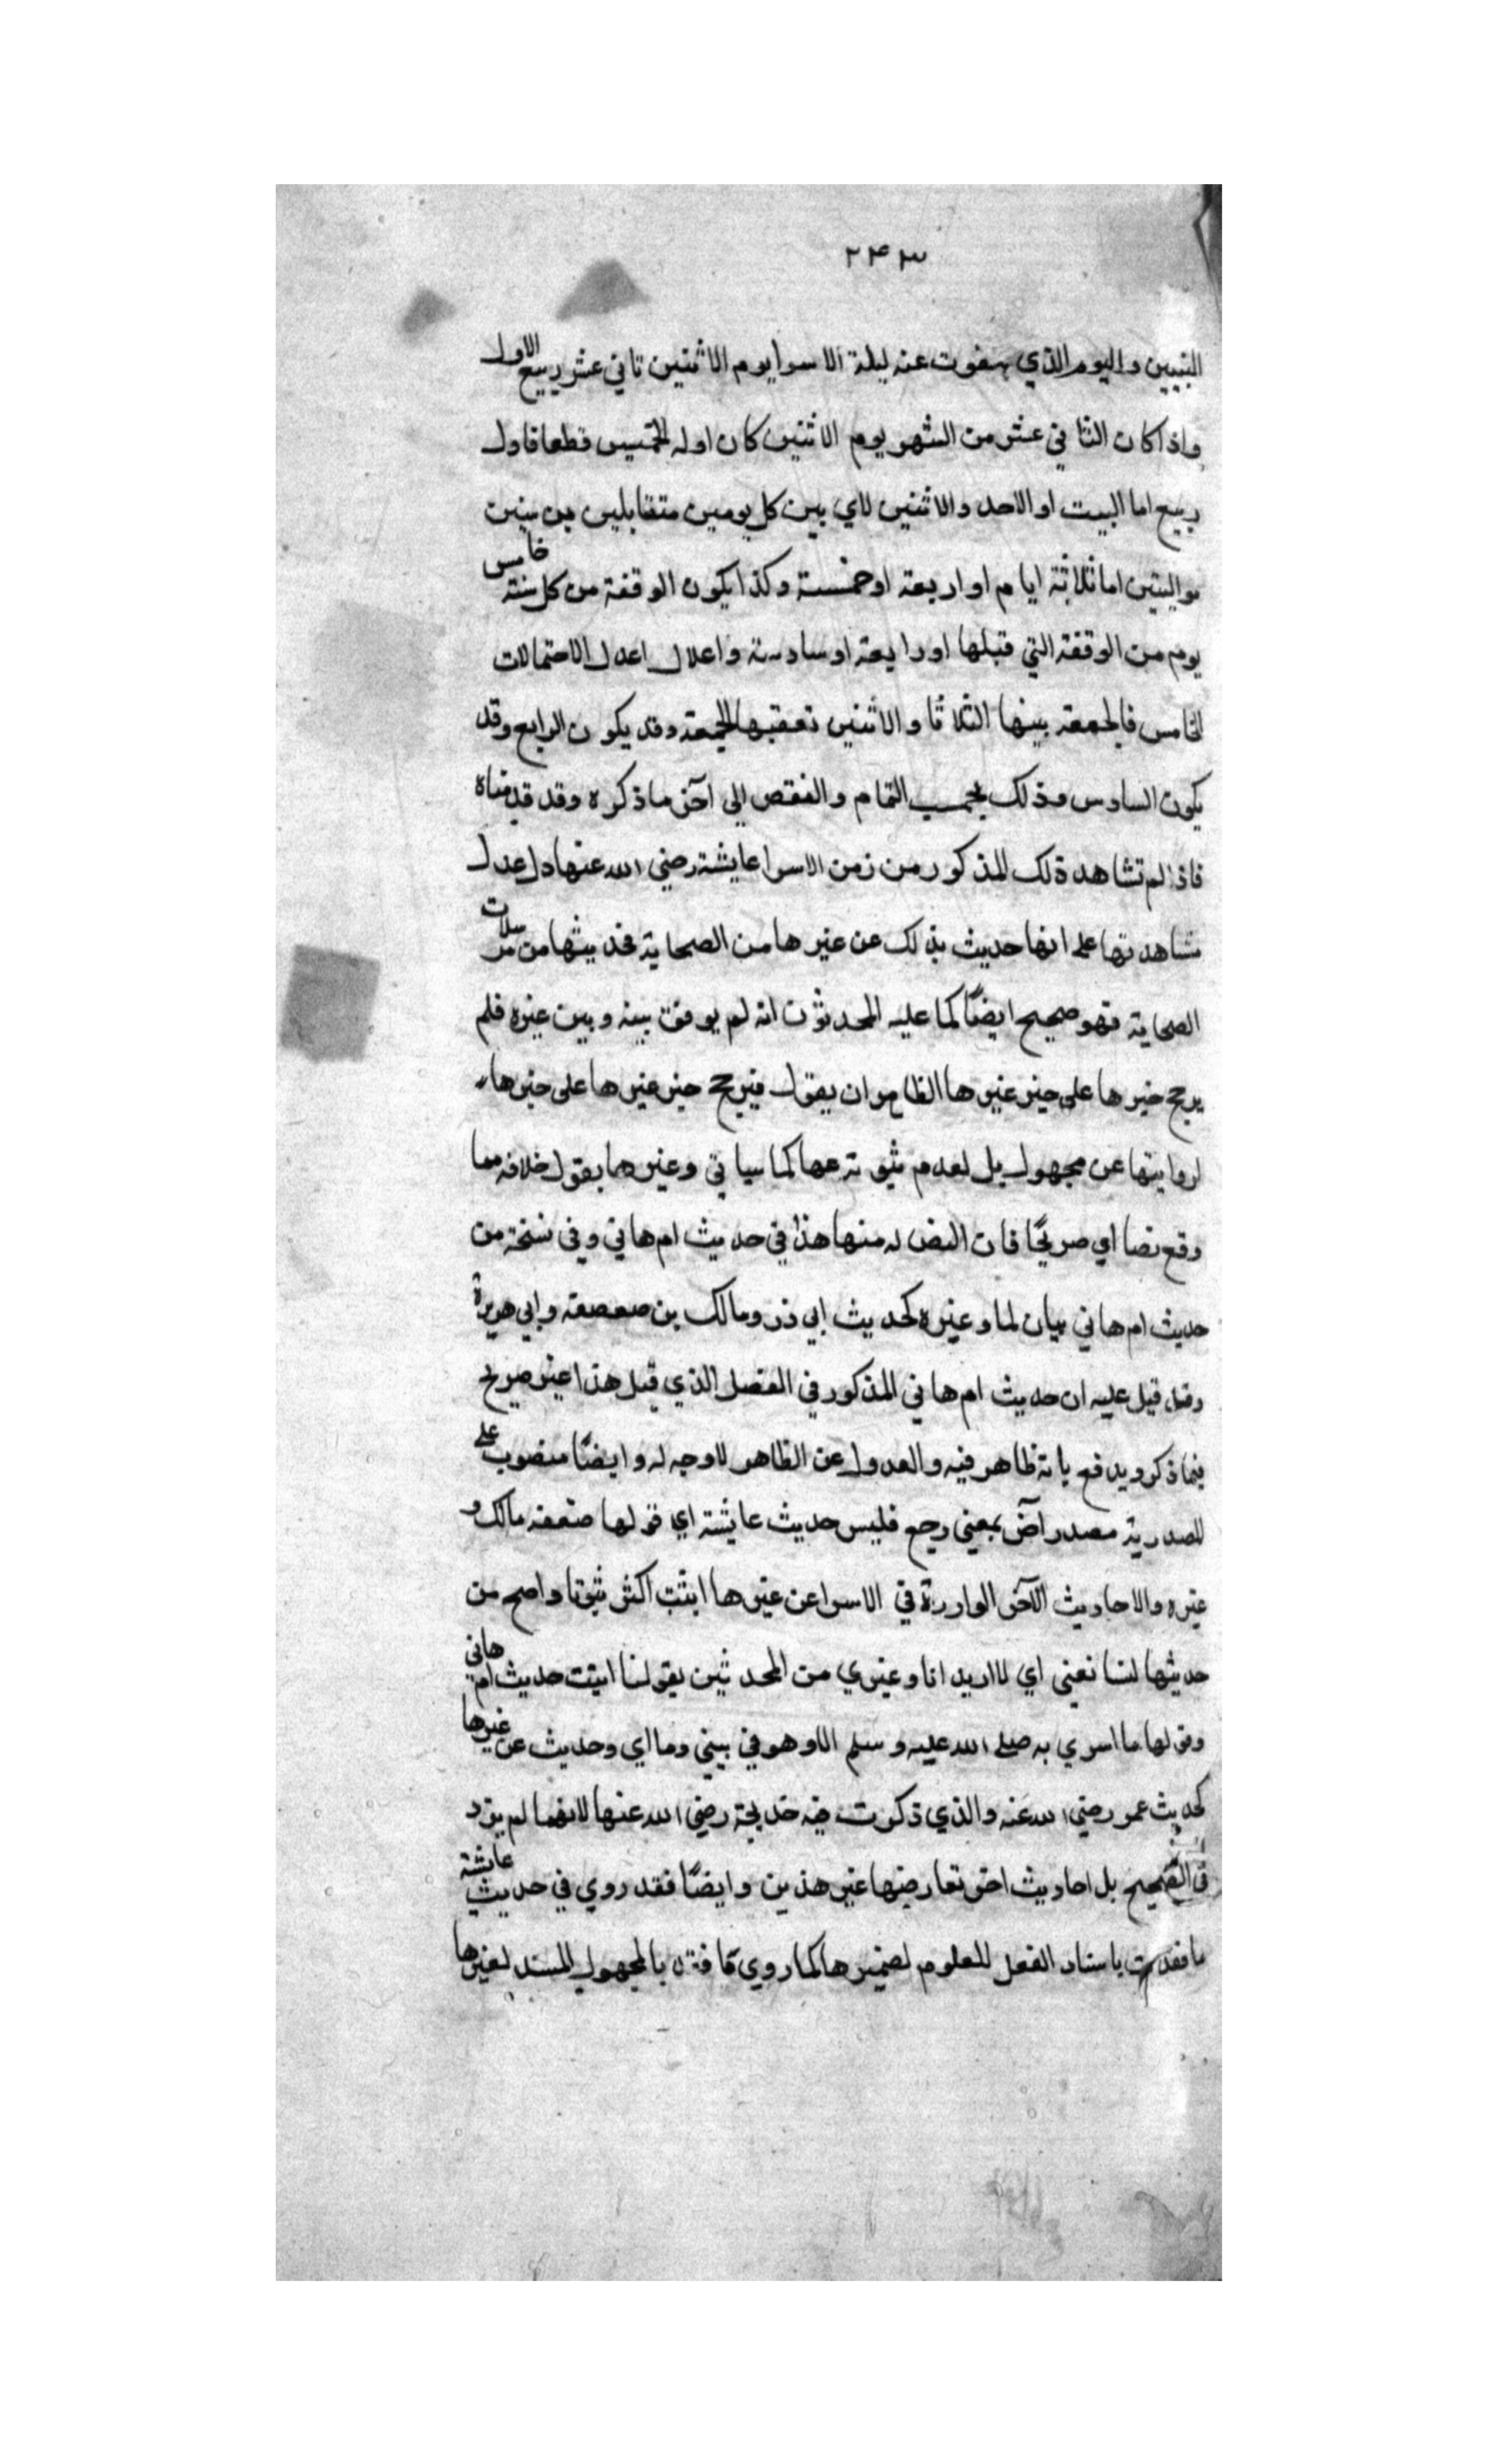 ٢٤٣
النبيين واليوم الذي يسفرت عنه ليلة الاسرا يوم الاثنين ثاني عشر ربيع الاول
واذا كان الثاني عشر من الشهر يوم الاثنين كان اوله الخميس قطعا فاول
ربيع اما السبت او الاحد والاثنين لاي بين كل يومين متقابلين من سنين
متواليتين اما ثلاثة ايام او اربعة او خمسة وكذا يكون الوقفة من كل سنة خامس
يوم من الوقفة التي قبلها او رابعة او سادسة واعلال اعدل الاحتمالات
الخامس فالجمعة بينها الثلاثا والاثنين تعقبها الجمعة وقد يكون الرابع وقد
يكون السادس وذلك بحسب التمام والنقص الى آخر ما ذكره وقد قدمناه
فاذا لم تشاهد ذلك المذكور من زمن الاسرا عايشة رضي الله عنها دل عدل
مشاهدتها على انها حديث بذلك عن غيرها من الصحابة فحديثها من مرسلات
الصحابة فهو صحيح ايضًا كما عليه المحدثون انه لم يوفق بينه وبين غيره فلم
يرجح خبرها على خبر غيرها الظاهر ان يقول فيرجح خبر غيرها على خبرها
لروايتها عن مجهول بل لعدم ثبوته عنها كما سياتي وغيرهما يقول خلافه مما
وقع نصا اي صريحًا فان النص له منها هذا في حديث ام هاني وفي نسخة من
حديث ام هاني بيان لما وغيره كحديث ابي ذر ومالك بن صعصعة وابي هريرة
وقد قيل عليه ان حديث ام هاني المذكور في الفصل الذي قبل هذا غير صريح
فيما ذكر ويدفع بانه ظاهر فيه والعدول عن الظاهر لا وجه له وايضًا منصوب على
المصدرية مصدر آض بمعنى رجع فليس حديث عايشة اي قولها ضعفه مالك و
غيره والاحاديث الآخر الواردة في الاسرا عن غيرها اثبت اكثر ثبوتا واصح من
حديثها لسنا نعني اي لا اريد انا وغيري من المحدثين بقولنا اثبتت حديث ام هاني
وقولها ما اسري به صلى الله عليه وسلم الا وهو في بيتي وما اي وحديث عن غيرها
كحديث عمر رضي الله عنه والذي ذكرت فيه خديجة رضي الله عنها لانهما لم يرد
في الصحيح بل احاديث اخر تعارضها غير هذين وايضًا فقد روي في حديث عايشة
ما فقدت باسناد الفعل المعلوم لضميرها كما روي ما فقد بالمجهول المسند لغيرها